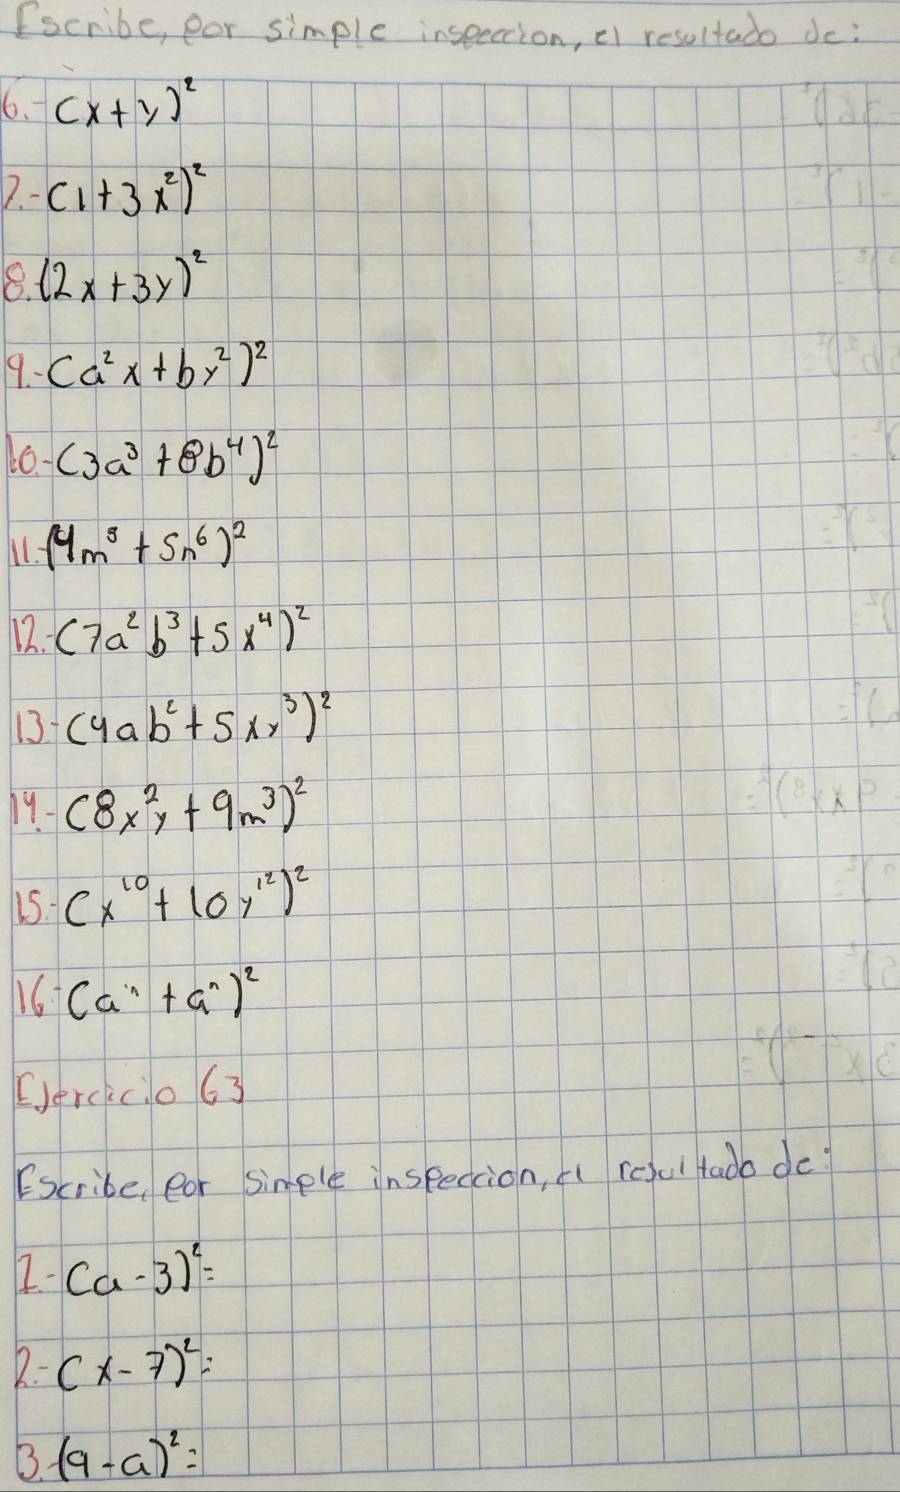 Escribe, por simple inspeccion, el resultado de:
6.- (x+y)²
7.- (1+3x²)²
8. (2x+3y)²
9.- (a²x+by²)²
10.- (3a³+8b⁴)²
11.- (4m⁵+5n⁶)²
12.- (7a²b³+5x⁴)²
13.- (4ab²+5xy³)²
14.- (8x²y+9m³)²
15.- (x¹⁰+10y¹²)²
16.- (aⁿ+aⁿ)²
Ejercicio 63
Escribe, por simple inspeccion, el resultado de:
1.- (a-3)²=
2.- (x-7)²=
3.- (9-a)²=